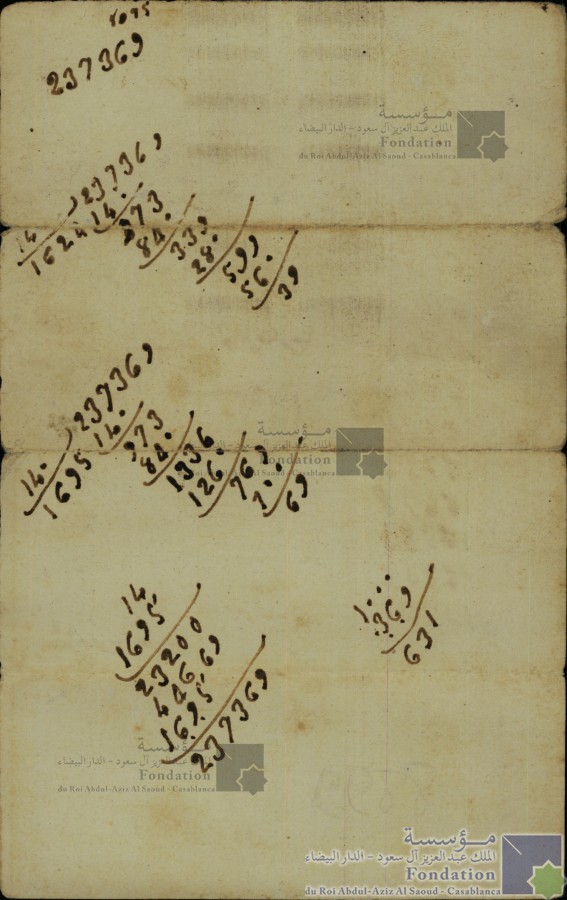 5095
237369
مؤسسة
الملك عبد العزيز آل سعود - الدار البيضاء
Fondation
du Roi Abdul-Aziz Al Saoud - Casablanca
14
1624
237369
14.
973
84.
339
28.
599
56.
39
140
1695
237369
14.
973
84.
1336
126.
769
700
69
مؤسسة
الملك عبد العزيز آل سعود - الدار البيضاء
Fondation
du Roi Abdul-Aziz Al Saoud - Casablanca
14
1695
23200
1695
237369
1000
.369
631
مؤسسة
الملك عبد العزيز آل سعود - الدار البيضاء
Fondation
du Roi Abdul-Aziz Al Saoud - Casablanca
مؤسسة
الملك عبد العزيز آل سعود - الدار البيضاء
Fondation
du Roi Abdul-Aziz Al Saoud - Casablanca